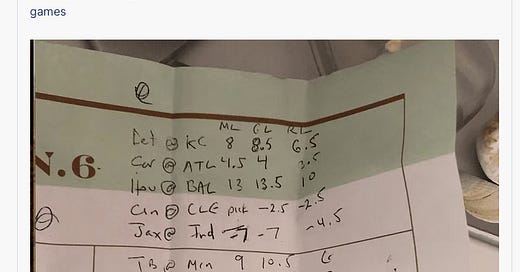 games
ML GL RL
Det @ KC 8 8.5 6.5
Car @ ATL 4.5 4 3.5
N.6
Hou @ BAL 13 13.5 10
Cin @ CLE pick -2.5 -2.5
Jax @ Ind -7 -4.5
TB @ Min 9 10.5